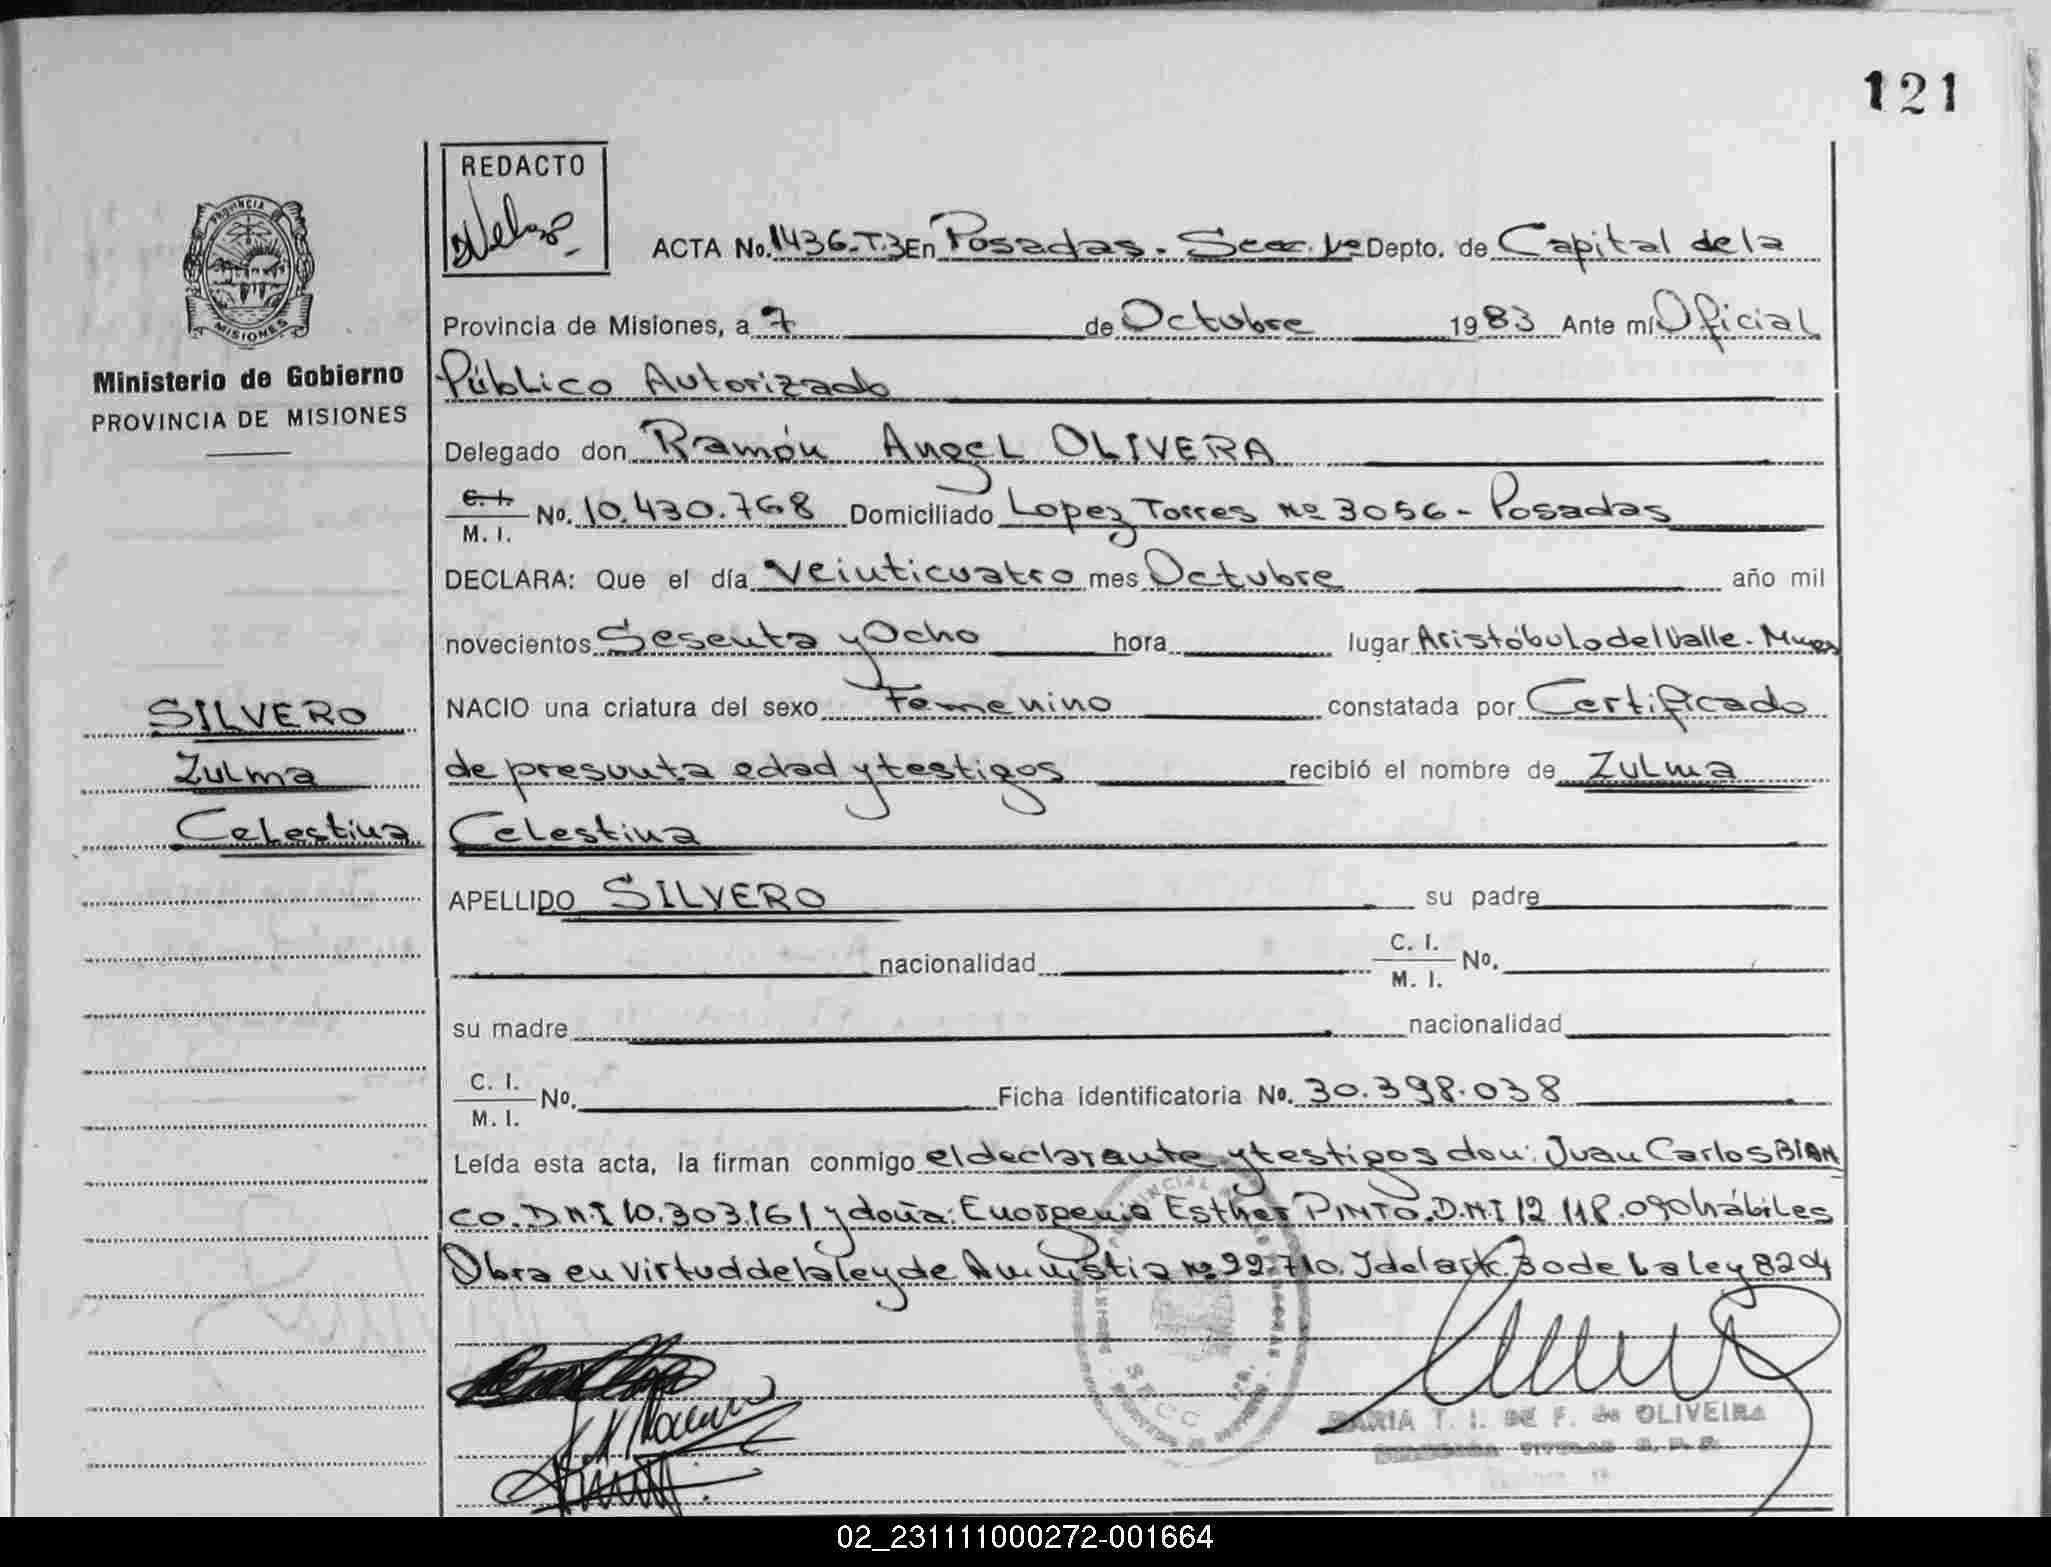 121
REDACTO
ACTA No. 1436-T.3 En Posadas - Secc. 1º Depto. de Capital de la
Provincia de Misiones, a 7 de Octubre 1983 Ante mí Oficial
PROVINCIA
MISIONES
Ministerio de Gobierno
PROVINCIA DE MISIONES
Público Autorizado
Delegado don Ramón Angel OLIVERA
C. I.
M. I. No. 10.430.768 Domiciliado Lopez Torres Nº 3056 - Posadas
DECLARA: Que el día Veinticuatro mes Octubre año mil
novecientos Sesenta y Ocho hora lugar Aristóbulo del Valle - Mnes
SILVERO
Zulma
Celestina
NACIO una criatura del sexo Femenino constatada por Certificado
de presunta edad y testigos recibió el nombre de Zulma
Celestina
APELLIDO SILVERO su padre
nacionalidad C. I.
M. I. No.
su madre nacionalidad
C. I.
M. I. No. Ficha identificatoria No. 30.398.038
Leída esta acta, la firman conmigo el declarante y testigos don: Juan Carlos BIAN
CO. D.N.I 10.303.161 y doña: Esther PINTO. D.N.I 12.118.090 hábiles
Obra en virtud de la ley de Amnistia Nº 22.710. de la ley 8204
MARIA T. I. DE F. de OLIVEIRA
02_231111000272-001664